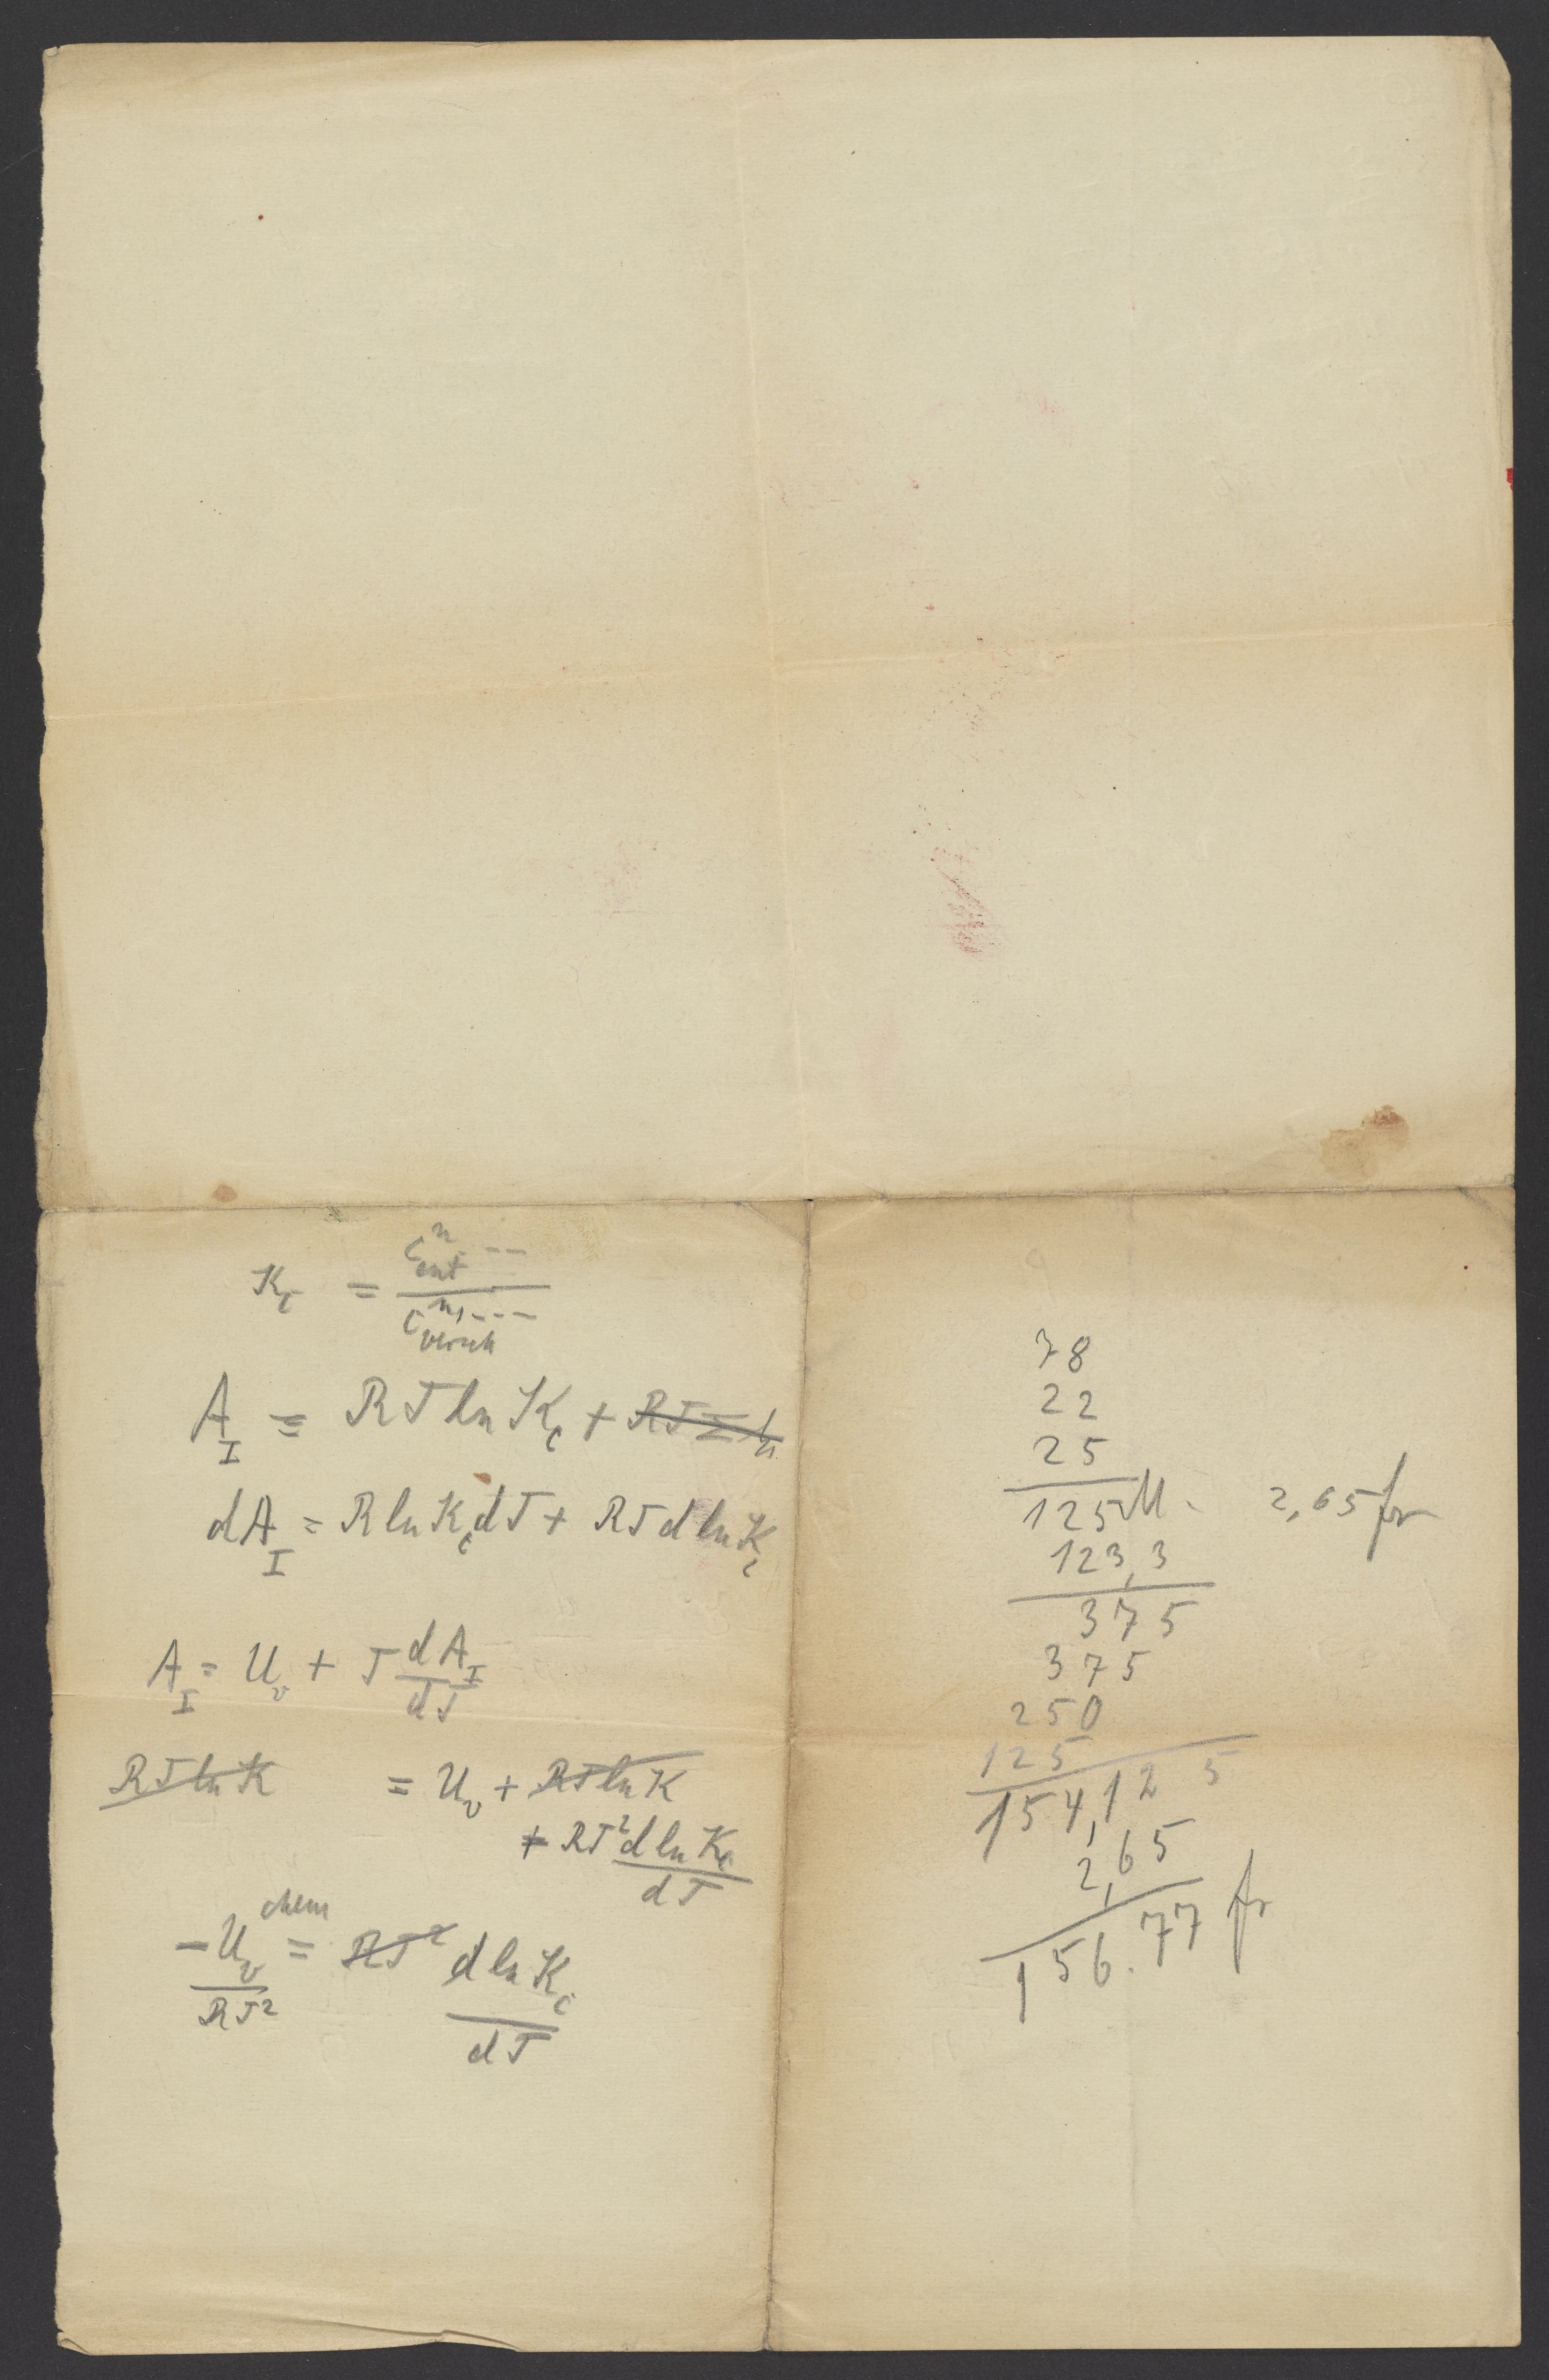 K_c = c^n_ent --- / c^n,---_versch
A_I = RT ln K_c + RTΣ
dA_I = R ln K_c dT + RT d ln K_c
A_I = U_v + T dA_I / dT
RT ln K = U_v + RT ln K
+ RT² d ln K_c / dT
- U_v^chem / RT² = RT² d ln K_c / dT
78
22
25
125 M. 2,65 fr
123,3
375
375
250
125
154,125
2,65
156.77 fr